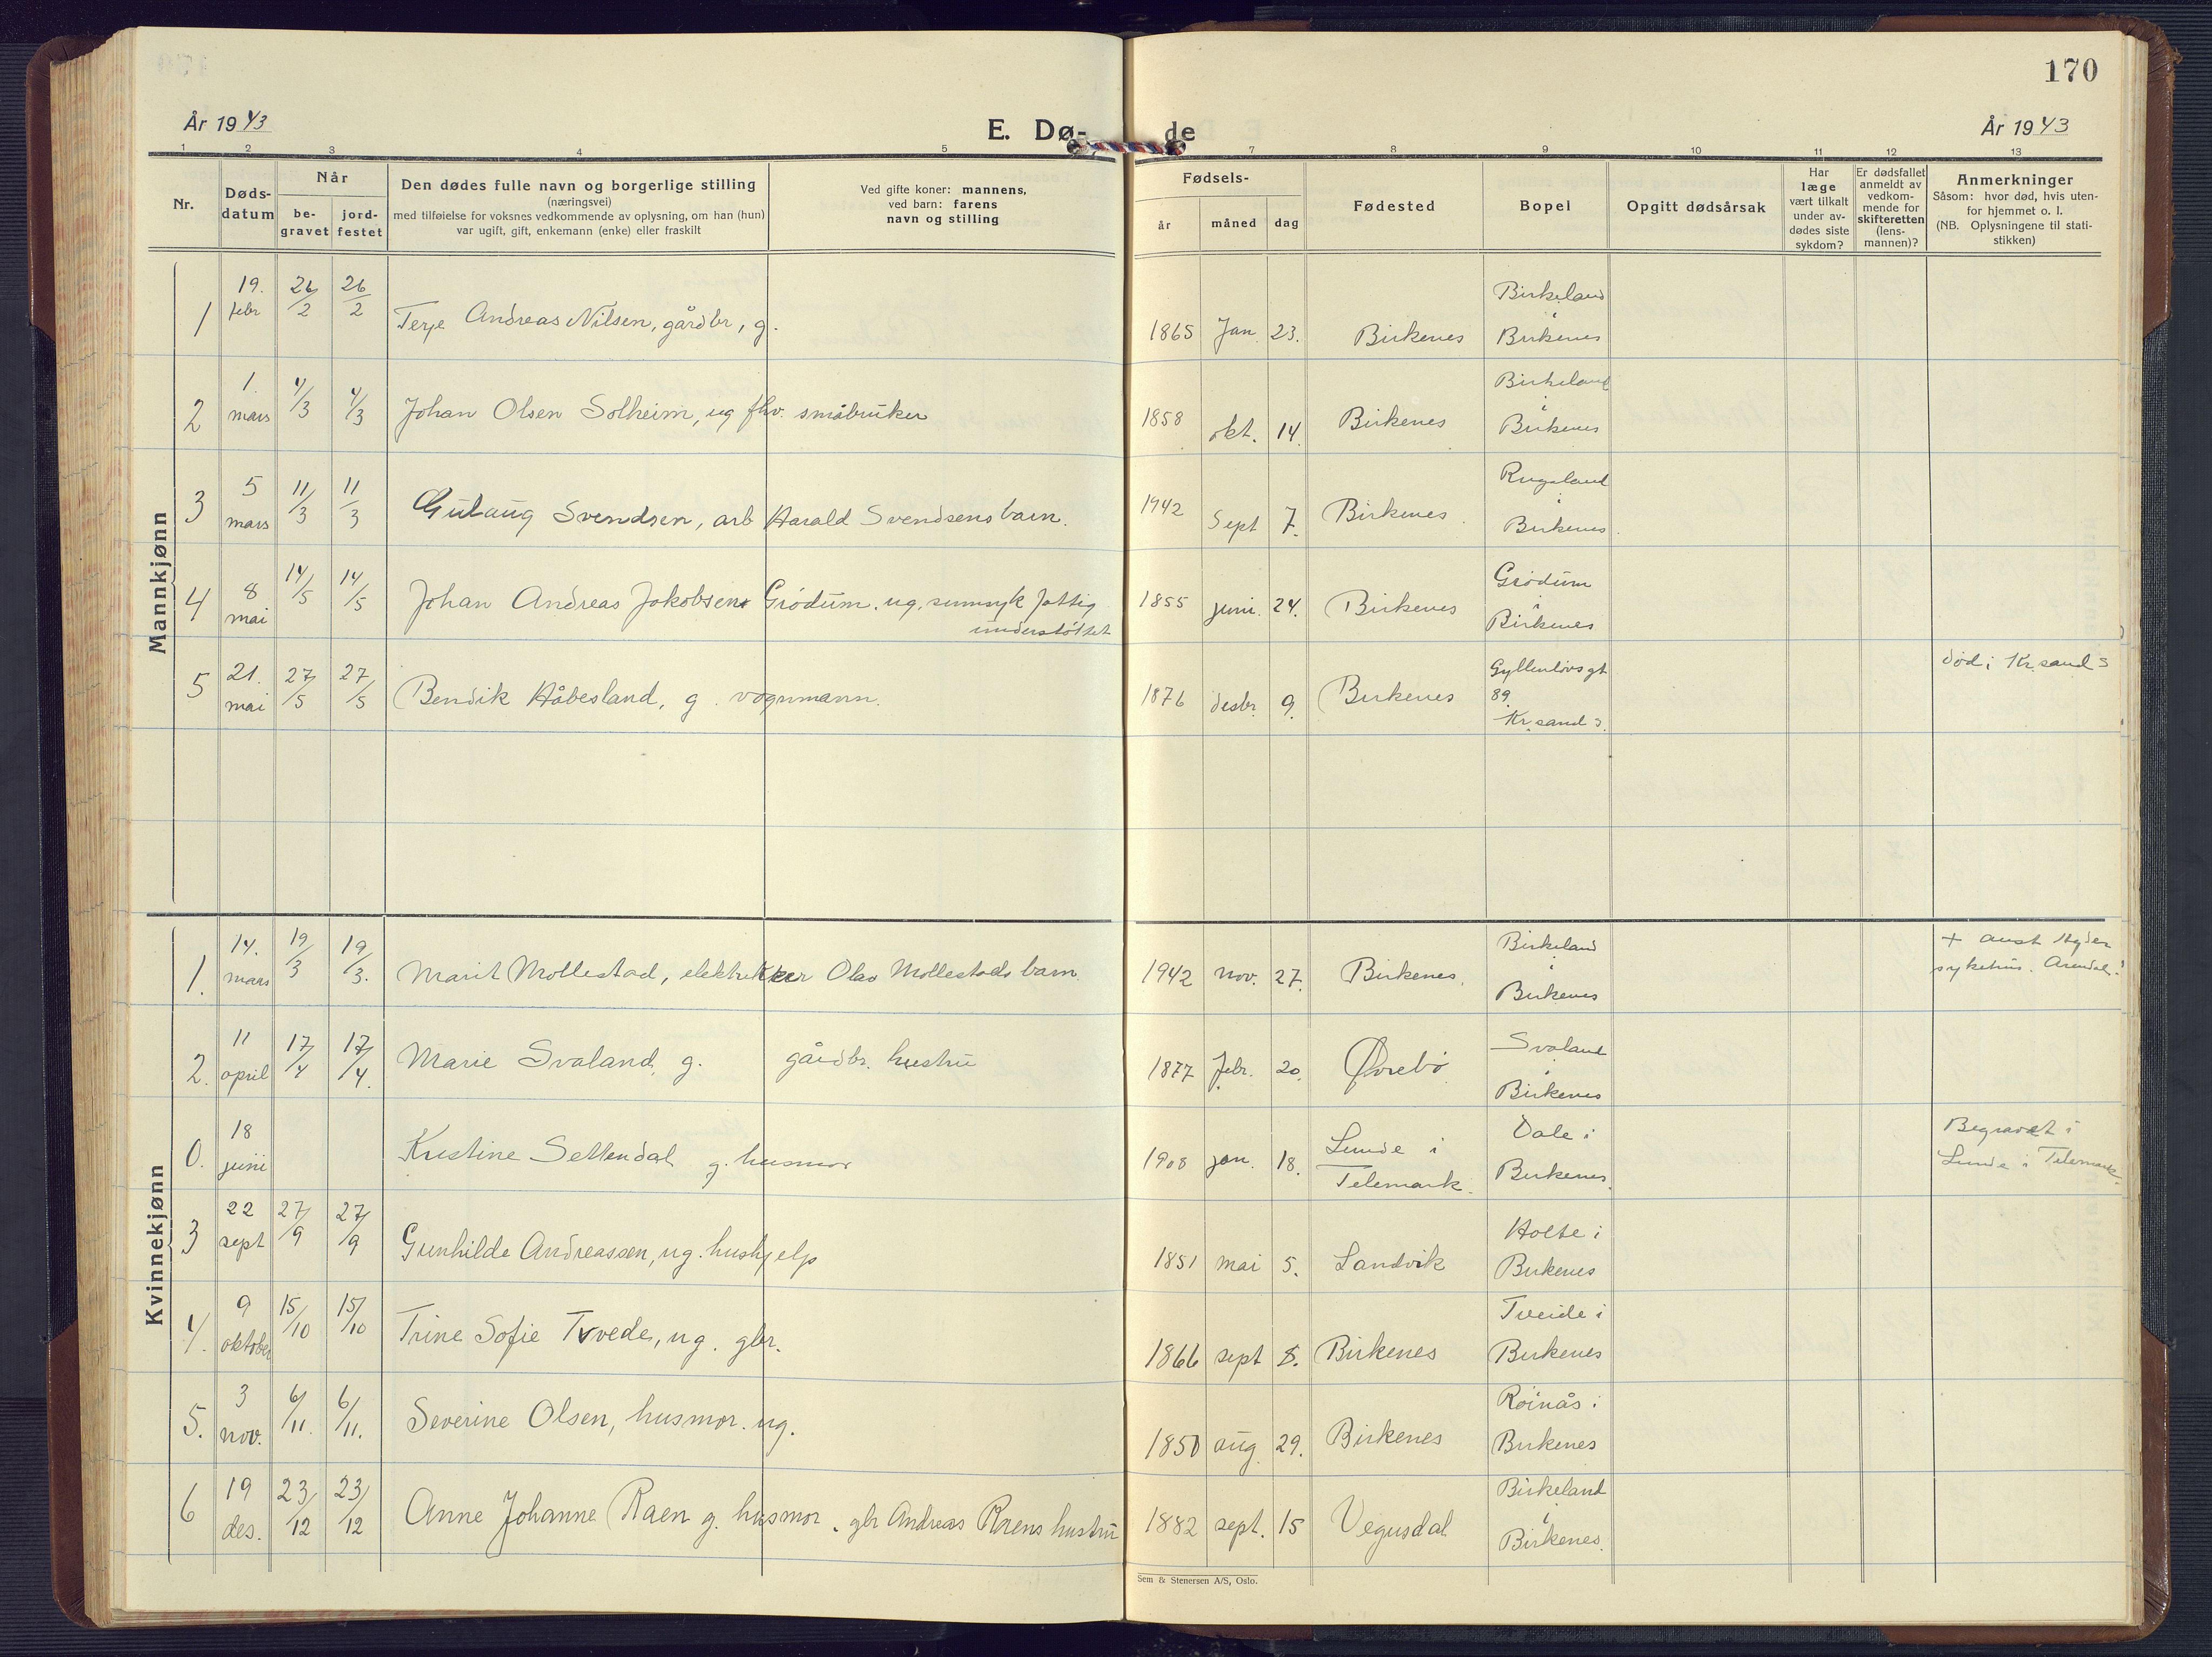 170
År 1943
E. Dø-
de
År 1943
1 2 3 4 5
7 8 9 10 11 12 13
Nr.
Døds-
datum
Når
be-
gravet
jord-
festet
Den dødes fulle navn og borgerlige stilling
(næringsvei)
med tilføielse for voksnes vedkommende av oplysning, om han (hun)
var ugift, gift, enkemann (enke) eller fraskilt
Ved gifte koner: mannens,
ved barn: farens
navn og stilling
Fødsels-
år
måned
dag
Fødested
Bopel
Opgitt dødsårsak
Har
læge
vært tilkalt
under av-
dødes siste
sykdom?
Er dødsfallet
anmeldt av
vedkom-
mende for
skifteretten
(lens-
mannen)?
Anmerkninger
Såsom: hvor død, hvis uten-
for hjemmet o. l.
(NB. Oplysningene til stati-
stikken)
Mannkjønn
1 19. febr 26/2 26/2 Terje Andreas Nilsen, gårdbr, g. 1865 Jan. 23. Birkenes Birkeland i Birkenes
2 1. mars 4/3 4/3 Johan Olsen Solheim, ug fhv. småbruker 1858 okt. 14. Birkenes Birkeland i Birkenes
3 5 mars 11/3 11/3 Gulaug Svendsen, arb Harald Svendsens barn. 1942 Sept 7. Birkenes. Rugsland i Birkenes.
4 8 mai 14/5 14/5 Johan Andreas Jakobsen Grödum. ug. sinnsyk fattig
understöttet 1855 juni. 24. Birkenes Grödum i Birkenes
5 21. mai 27/5 27/5 Bendik Håbesland, g. vognmann. 1876 desbr. 9. Birkenes Gyllenlövsgt 89. Kr.sand S. död i Kr.sand S
Kvinnekjønn
1. 14. mars 19/3 19/3. Marit Mollestad, elektrikker Olav Mollestads barn. 1942 nov. 27. Birkenes. Birkeland i Birkenes + Aust Agder
sykehus. Arendal.
2. 11 april 17/4 17/4. Marie Svaland, g. gårdbr. hustru 1877 febr. 20. Øvrebö Svaland i Birkenes
0. 18 juni Kristine Settendal g. husmor 1908 jan. 18. Lunde i Telemark. Dale i Birkenes. Begravet i
Lunde i Telemark.
3 22 sept 27/9 27/9 Gunhilde Andreassen, ug. hushjelp 1851 mai 5. Landvik Holte i Birkenes
4. 9 oktober 15/10 15/10 Trine Sofie Tvede, ug. gbr. 1866 sept 8. Birkenes Tveide i Birkenes
5. 3 nov. 6/11. 6/11. Severine Olsen, husmor. ug. 1850 aug 29. Birkenes Röinås i Birkenes
6 19 des. 23/12 23/12 Anne Johanne Raen g. husmor. gbr Andreas Raens hustru 1882 sept. 15 Vegusdal Birkeland i Birkenes.
Sem & Stenersen A/S, Oslo.